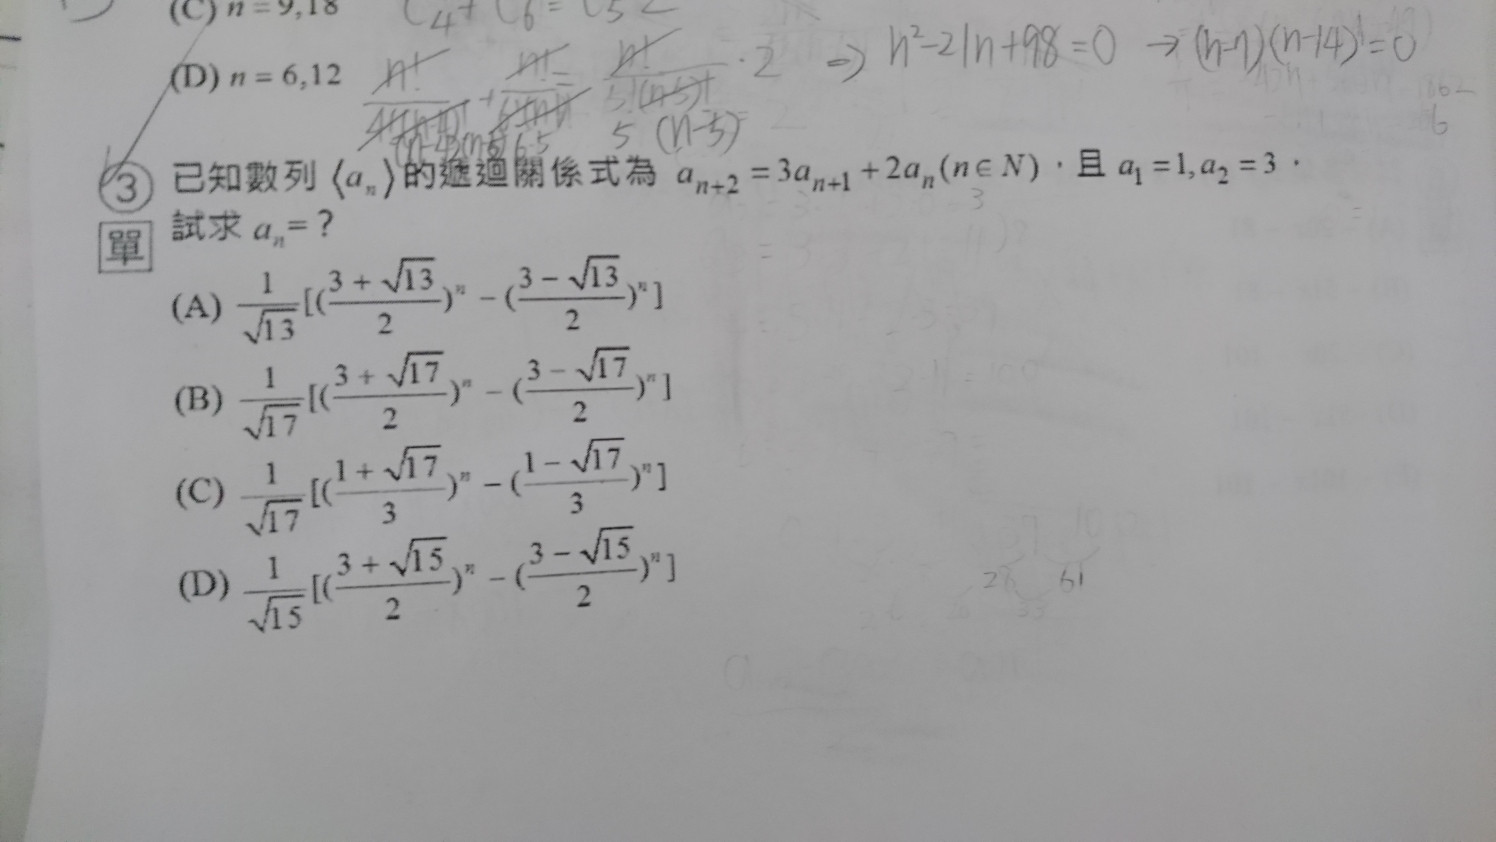 (C) n = 9,18
(D) n = 6,12
⇒ n²-21n+98=0 → (n-7)(n-14)=0
5 (n-5)
③ 已知數列 ⟨aₙ⟩ 的遞迴關係式為 aₙ₊₂ = 3aₙ₊₁ + 2aₙ (n ∈ N)，且 a₁ = 1, a₂ = 3，
單 試求 aₙ = ?
(A) 1/√13 [((3 + √13)/2)ⁿ − ((3 − √13)/2)ⁿ]
(B) 1/√17 [((3 + √17)/2)ⁿ − ((3 − √17)/2)ⁿ]
(C) 1/√17 [((1 + √17)/3)ⁿ − ((1 − √17)/3)ⁿ]
(D) 1/√15 [((3 + √15)/2)ⁿ − ((3 − √15)/2)ⁿ]
61